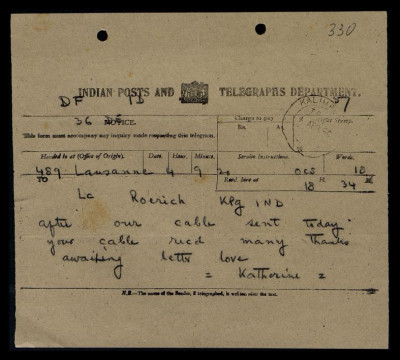 330
INDIAN POSTS AND TELEGRAPHS DEPARTMENT.
DF 1D
36 NOTICE.
Charges to pay
Rs. As.
This form must accompany any inquiry made respecting this telegram.
Handed in at (Office of Origin). Date. Hour. Minute. Service Instructions. Words.
489 Lausanne 4 9 20 OCS 18
TO Recd. here at 18 H. 34 M.
Roerich Kpg IND
after our cable sent today
your cable recd many thanks
awaiting letter love
= Katherine =
N.B.—The name of the Sender, if telegraphed, is written after the text.